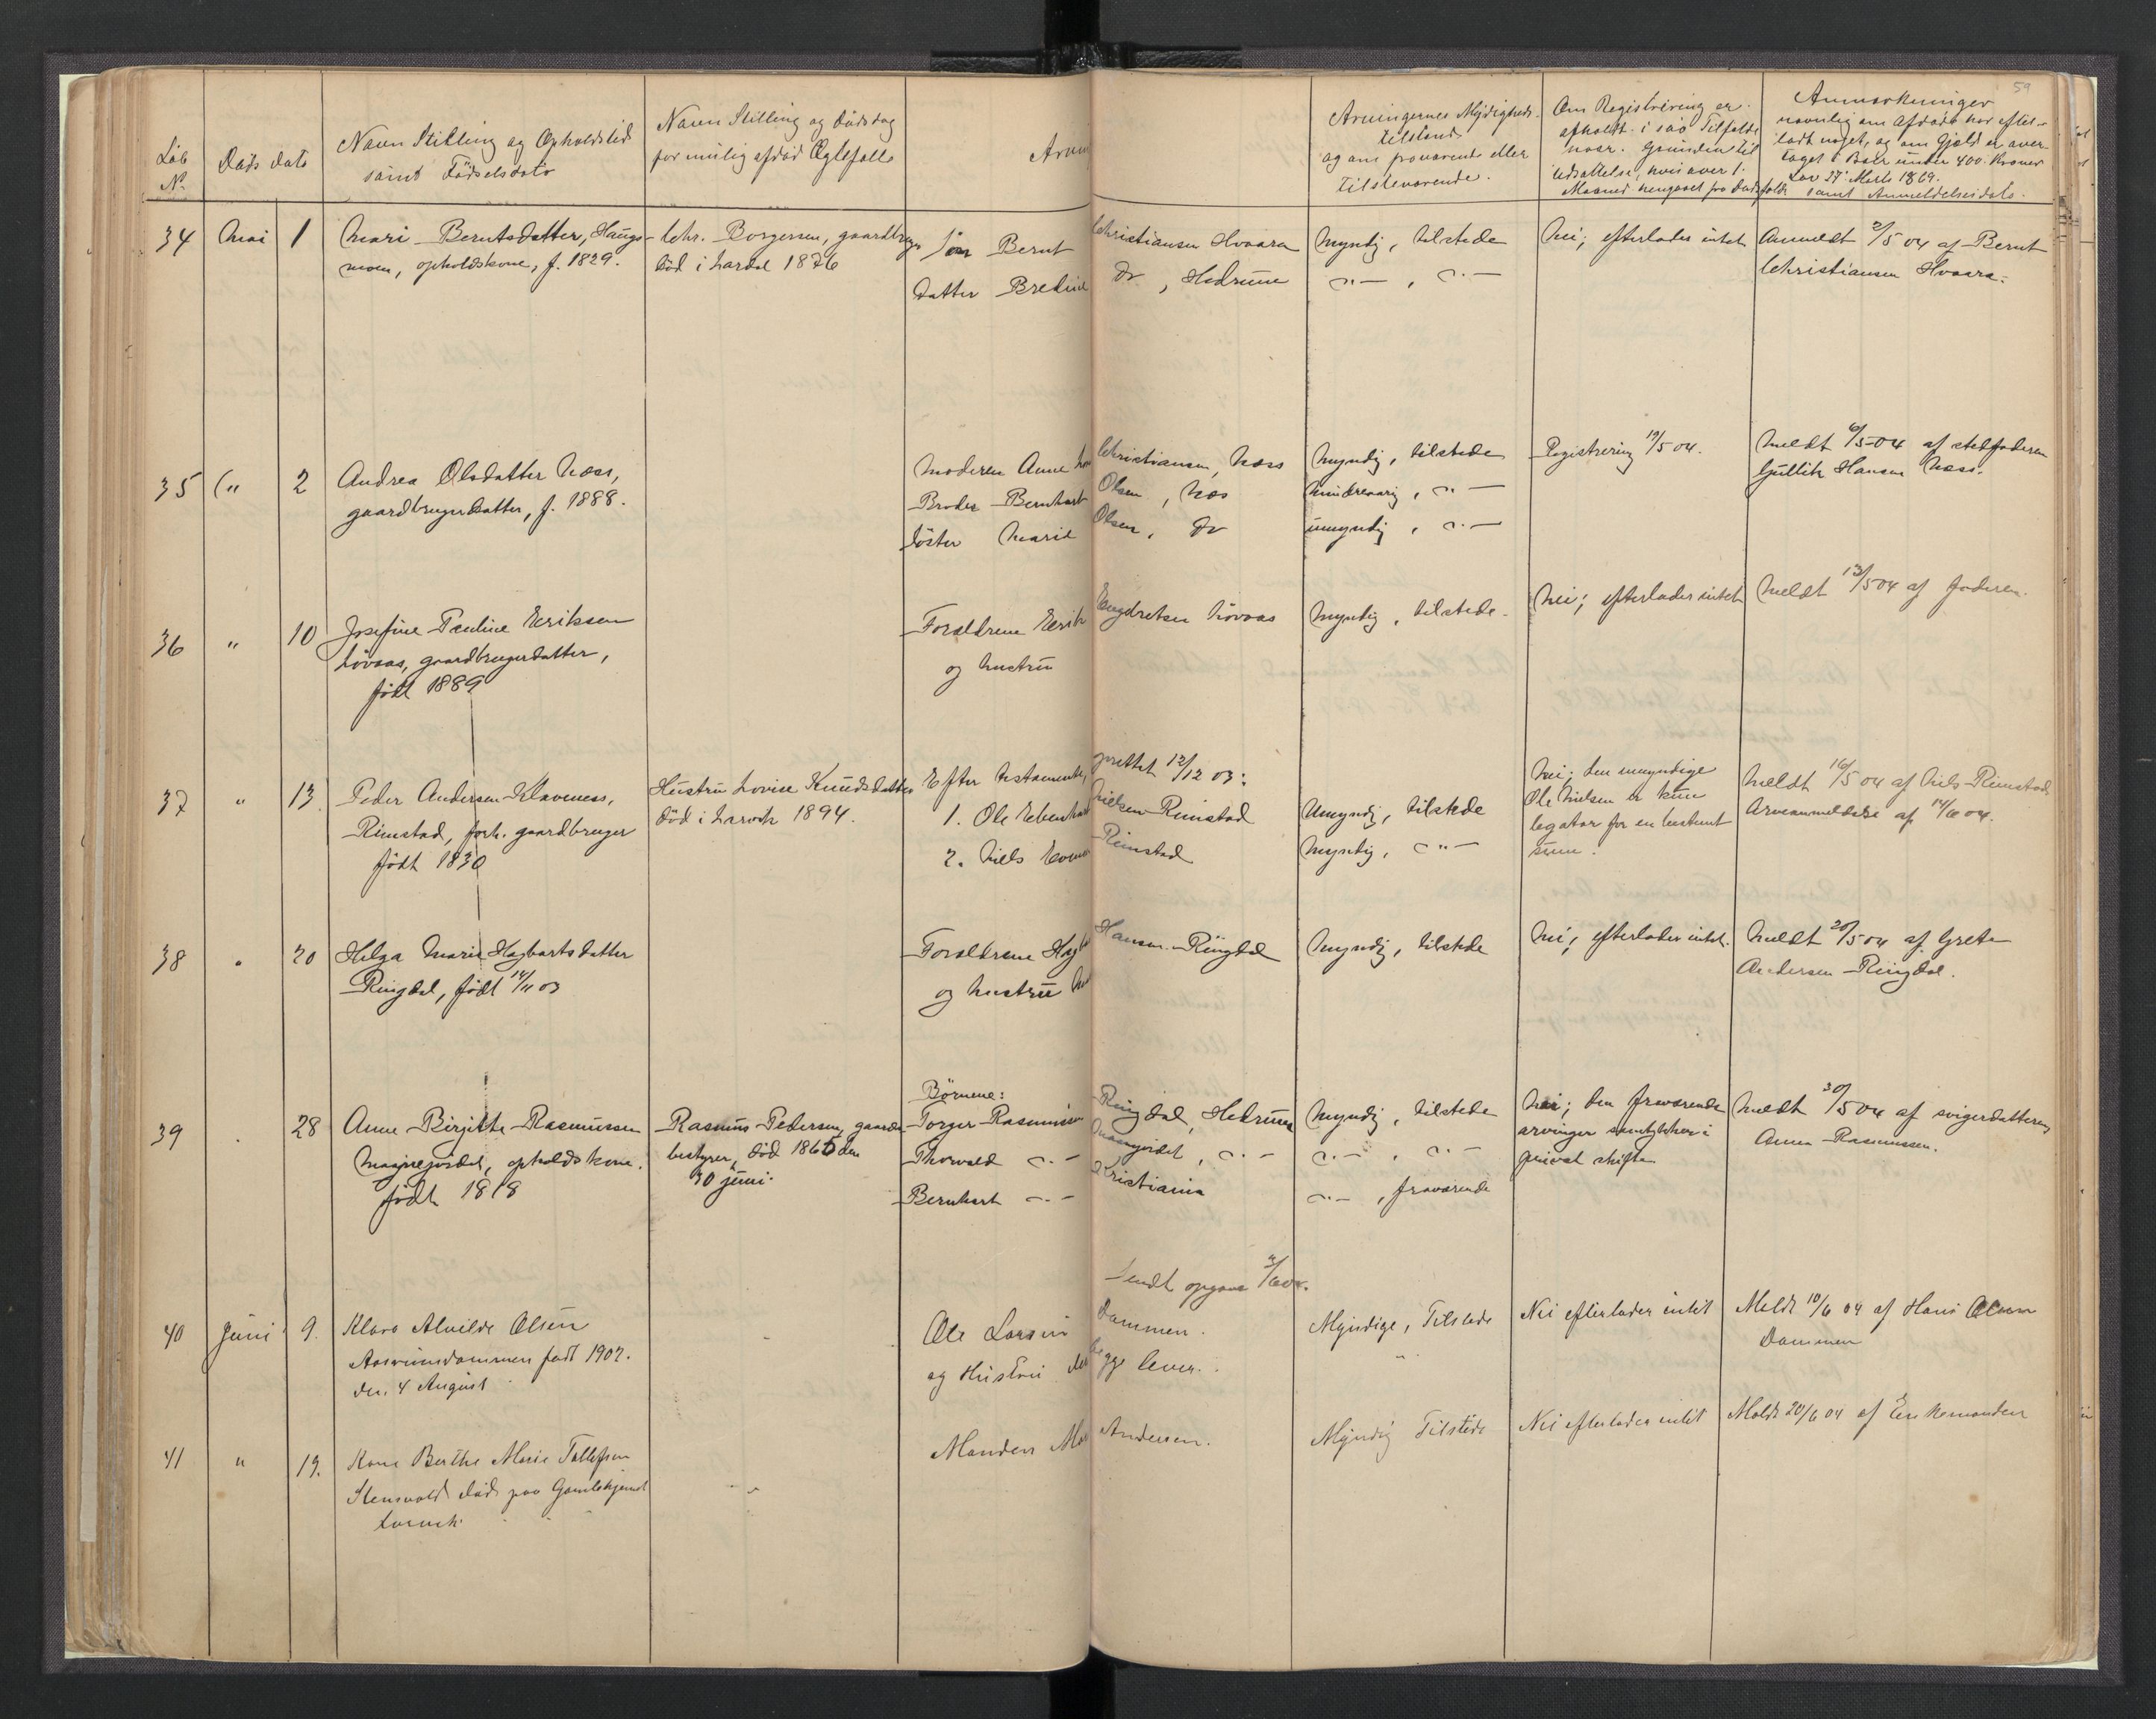 59
Løb
No.
Døds dato
Navn Stilling og Opholdsted
samt Födselsdato
Navn Stilling og Dödsdag
for mulig afdød Ægtefælle
Arvin
Arvingernes Myndigheds-
tilstand
og om fraværende eller
tilsteværende.
Om Registrering er
afholdt i saa Tilfælde
naar. Grunden til
Udsættelse, hvis over 1
Maaned hengaaet fra Dödsfaldt
Anmerkninger
navnlig om Afdøde har efter-
ladt noget, og om Gjæld er over-
taget i Boer under 400 Kroner
Lov 27 Marts 1869.
samt Anmeldelsesdato.
34 Mai 1 Mari Berntsdatter, Haugs-
moen, opholdskone, f. 1829.
Chr. Borgersen, gaardbruger
död i Lardal 1876
Sön Bernt Christiansen Hvaara
datter Bredine Do , Hedrum
Myndig, tilstede
—"— , —"—
Nei; efterlader intet
Anmeldt 2/5 04 af Bernt
Christiansen Hvaara.
35 " 2 Andrea Olsdatter Næss,
gaardbrugerdatter, f. 1888.
Moderen Anne Christiansen, Næss
Broder Bernhart Olsen, Næs
Söster Marie Olsen, Do
Myndig, tilstede
Mindreaarig, —"—
Umyndig, —"—
Registrering 19/5 04.
Meldt 6/5 04 af stedfaderen
Gullik Hansen Næss.
36 " 10 Josefine Pauline Eriksen
Lövaas, gaardbrugerdatter,
födt 1889
Forældrene Erik Engebretsen Lövaas
og hustru
Myndig, tilstede.
Nei; efterlader intet
Meldt 13/5 04 af faderen.
37 " 13 Peder Andersen Klaveness,
Rimstad, forh. gaardbruger
födt 1830
Hustru Lovise Knudsdatter
död i Larvik 1894.
Efter testamente, oprettet 12/12 03:
1. Ole Nielsen Rimstad
2. Niels Rimstad
Umyndig, tilstede
Myndig, —"—
Nei; den umyndige
Ole Nielsen er kun
legatar for en bestemt
sum.
Meldt 16/5 04 af Niels Rimstad
Arveanmeldelse af 14/6 04.
38 " 20 Helga Marie Hagbartsdatter
Ringdal, födt 14/11 03
Forældrene Hag Hansen Ringdal
og hustru
Myndig, tilstede
Nei; efterlader intet.
Meldt 20/5 04 af Grete
Andersen Ringdal.
39 . 28 Anne Birgitte Rasmussen
opholdskone.
födt 1818
Rasmus Pedersen, gaards-
bestyrer, död 1865 den
30 juni.
Börnene:
Torger Rasmussen Ringdal, Hedrum
Thorvald —"— , —"—
Bernhart —"— Kristiania
Myndig, tilstede
—"— , —"—
—"— , fraværende
Nei; den fraværende
arvinger samtykker i
privat skifte
Meldt 30/5 04 af svigerdatteren
Anna Rasmussen.
Sendt opgave 2/6 04.
40 Juni 9. Klara Alvilde Olsen
Aasrumsdammen født 1902.
den 4 August
Ole Larsen Dammen.
og Hustru begge lever.
Myndige, Tilstede
"
Nei efterlader intet
Meldt 10/6 04 af Hans Olsen
Dammen
41 " 19. Kone Berthe Marie Tollefsen
Stensvold död paa Gamlehjemet
Larvik.
Manden Andersen.
Myndig Tilstede
Nei efterlader intet
Meldt 20/6 04 af Enkemanden